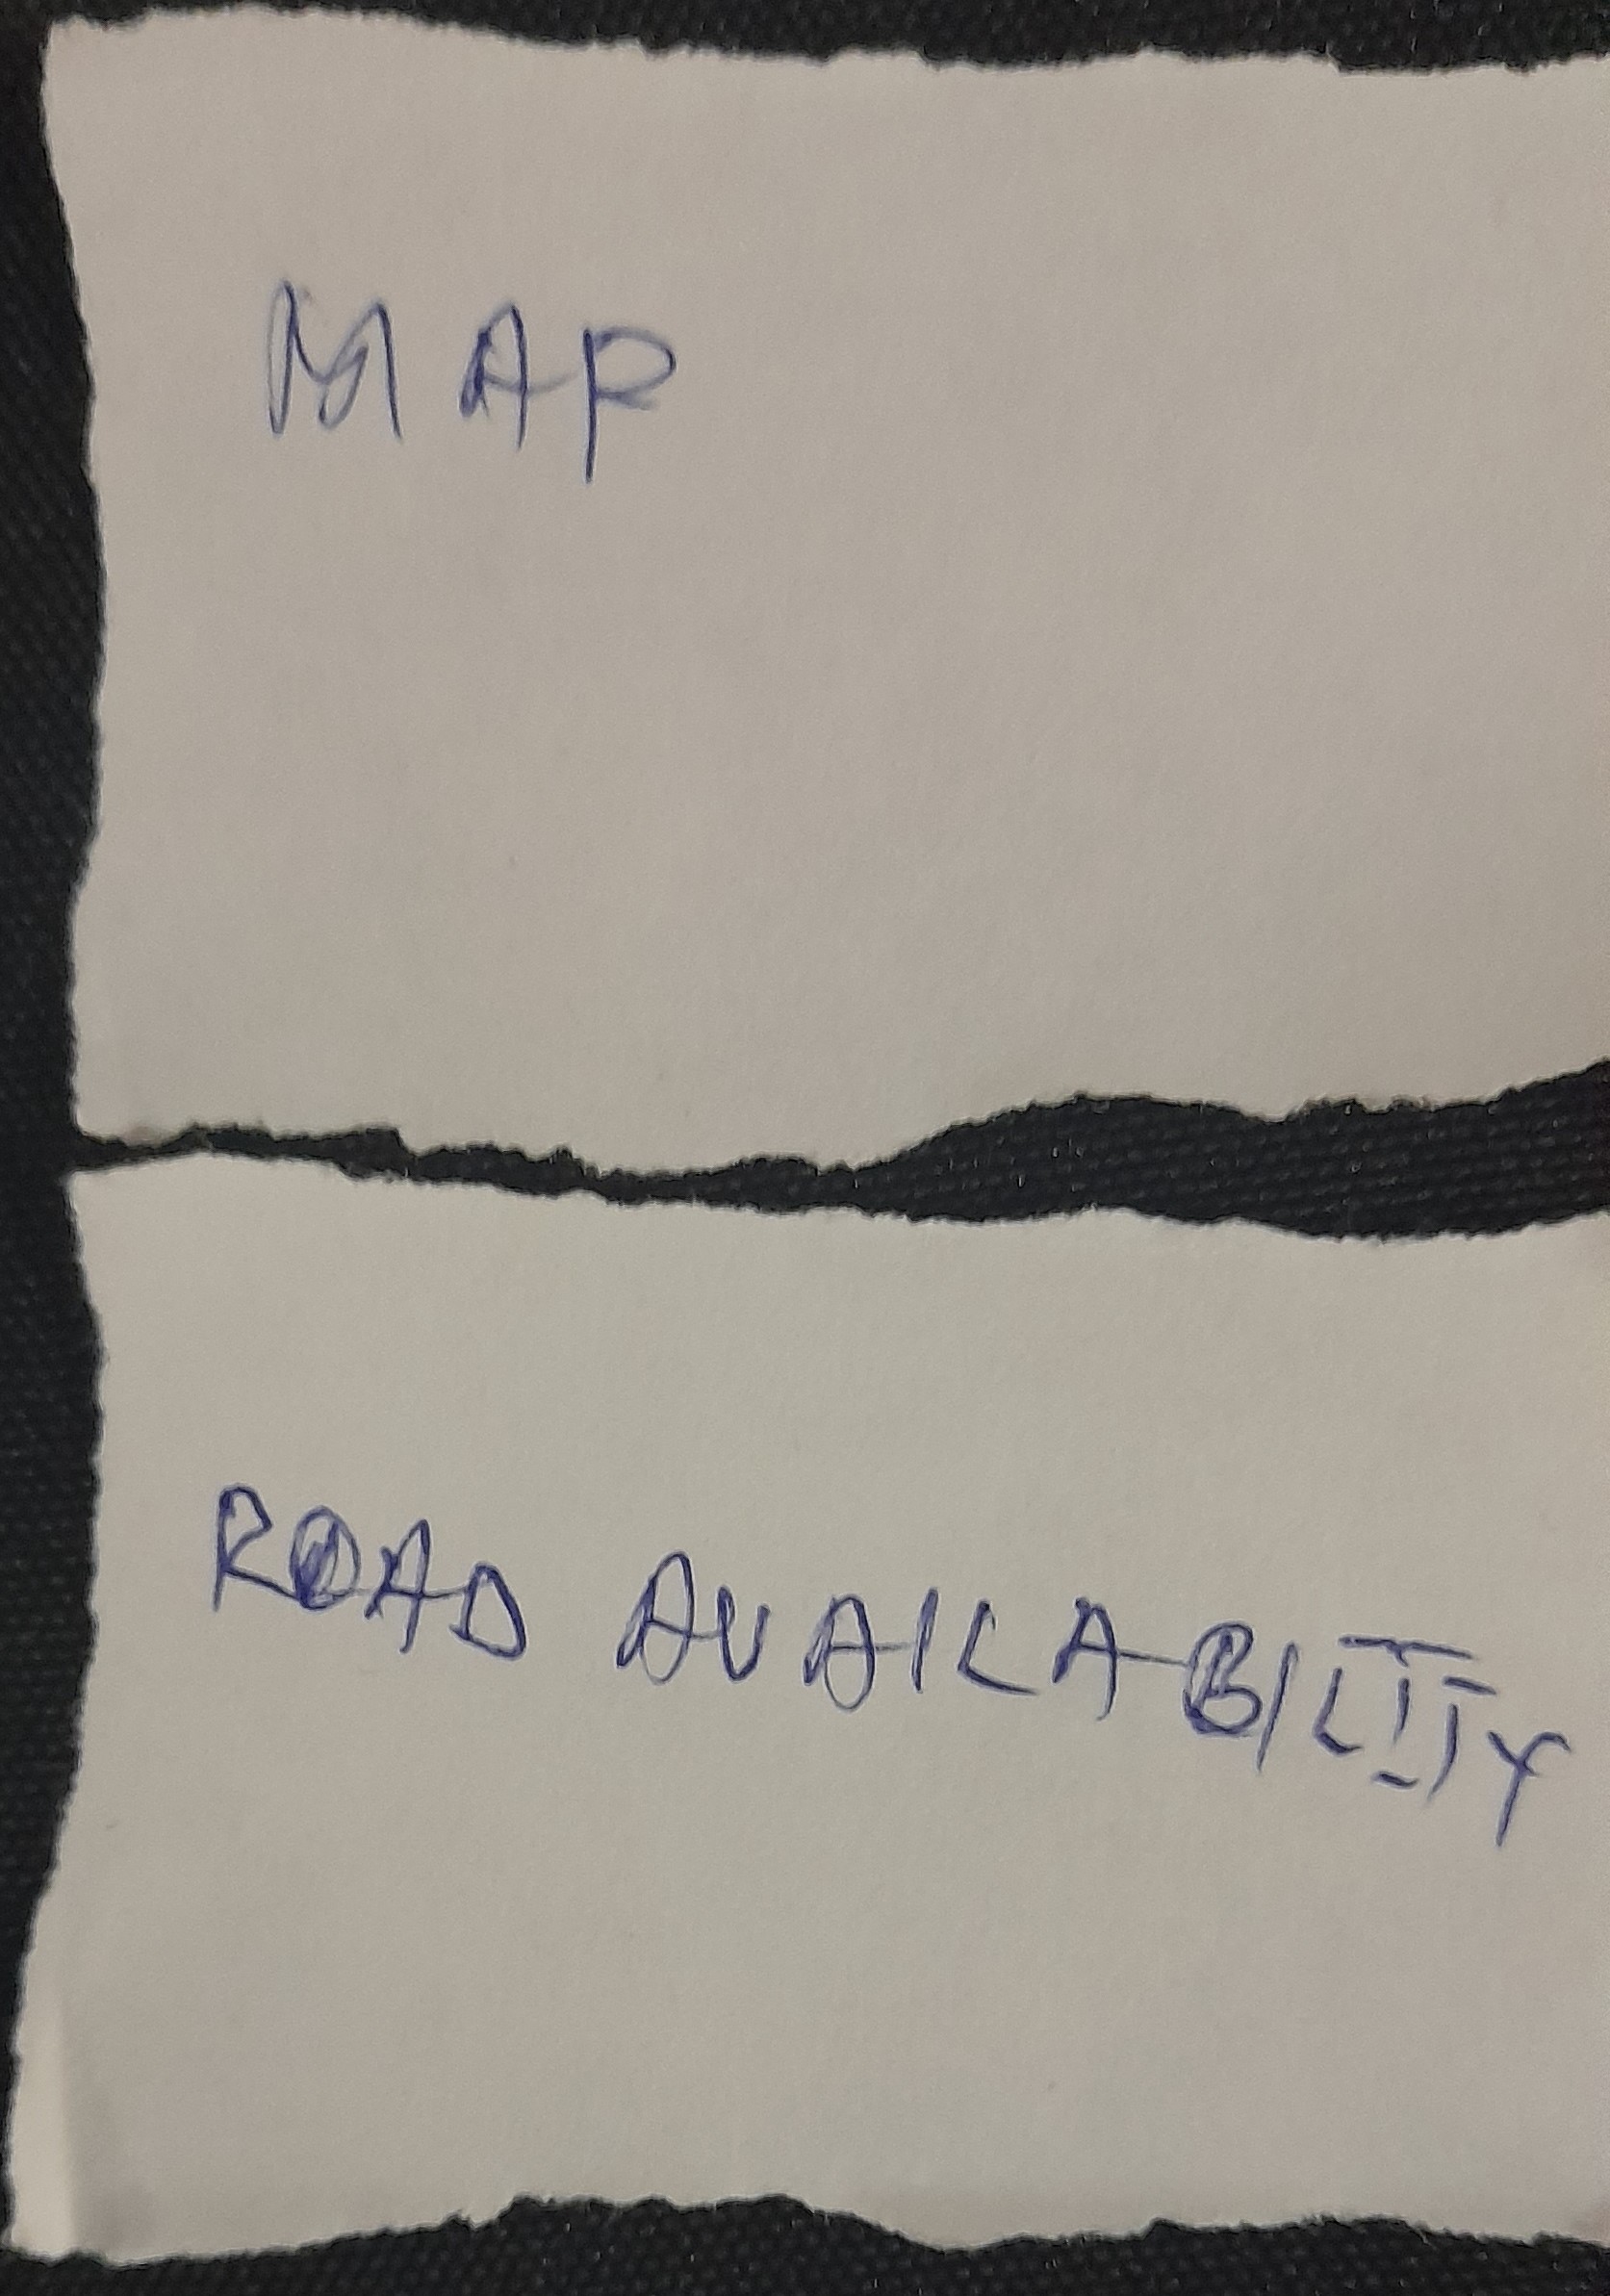 MAP
ROAD AVAILABILITY